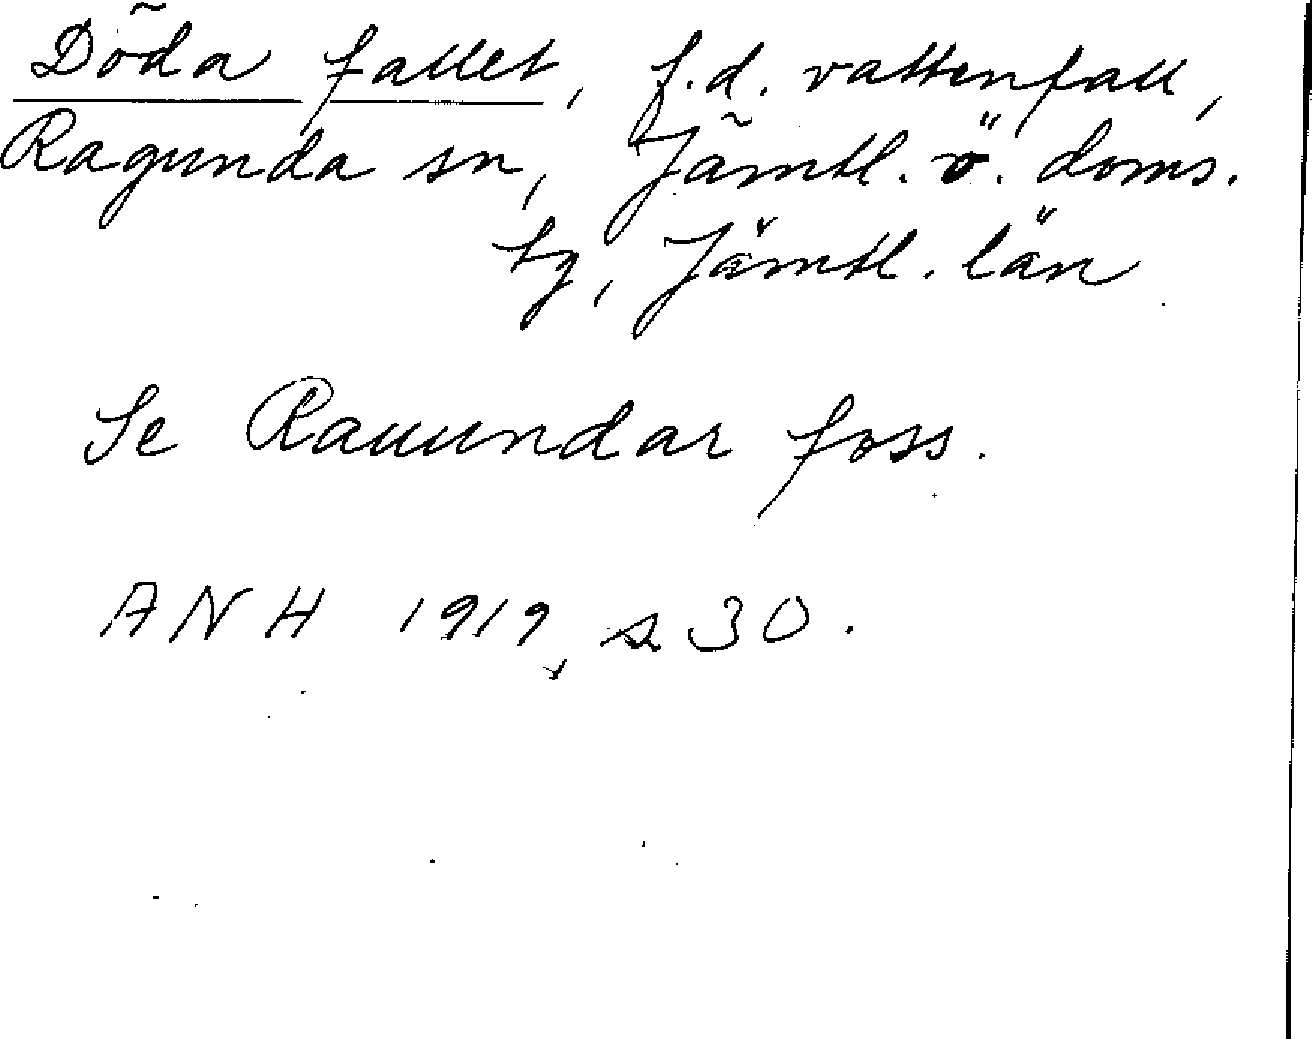 Döda fallet, f.d. vattenfall,
Ragunda sn, Jämtl. ö. doms.
tg, Jämtl. län
Se Rauundar foss.
ANH 1919, s 30.